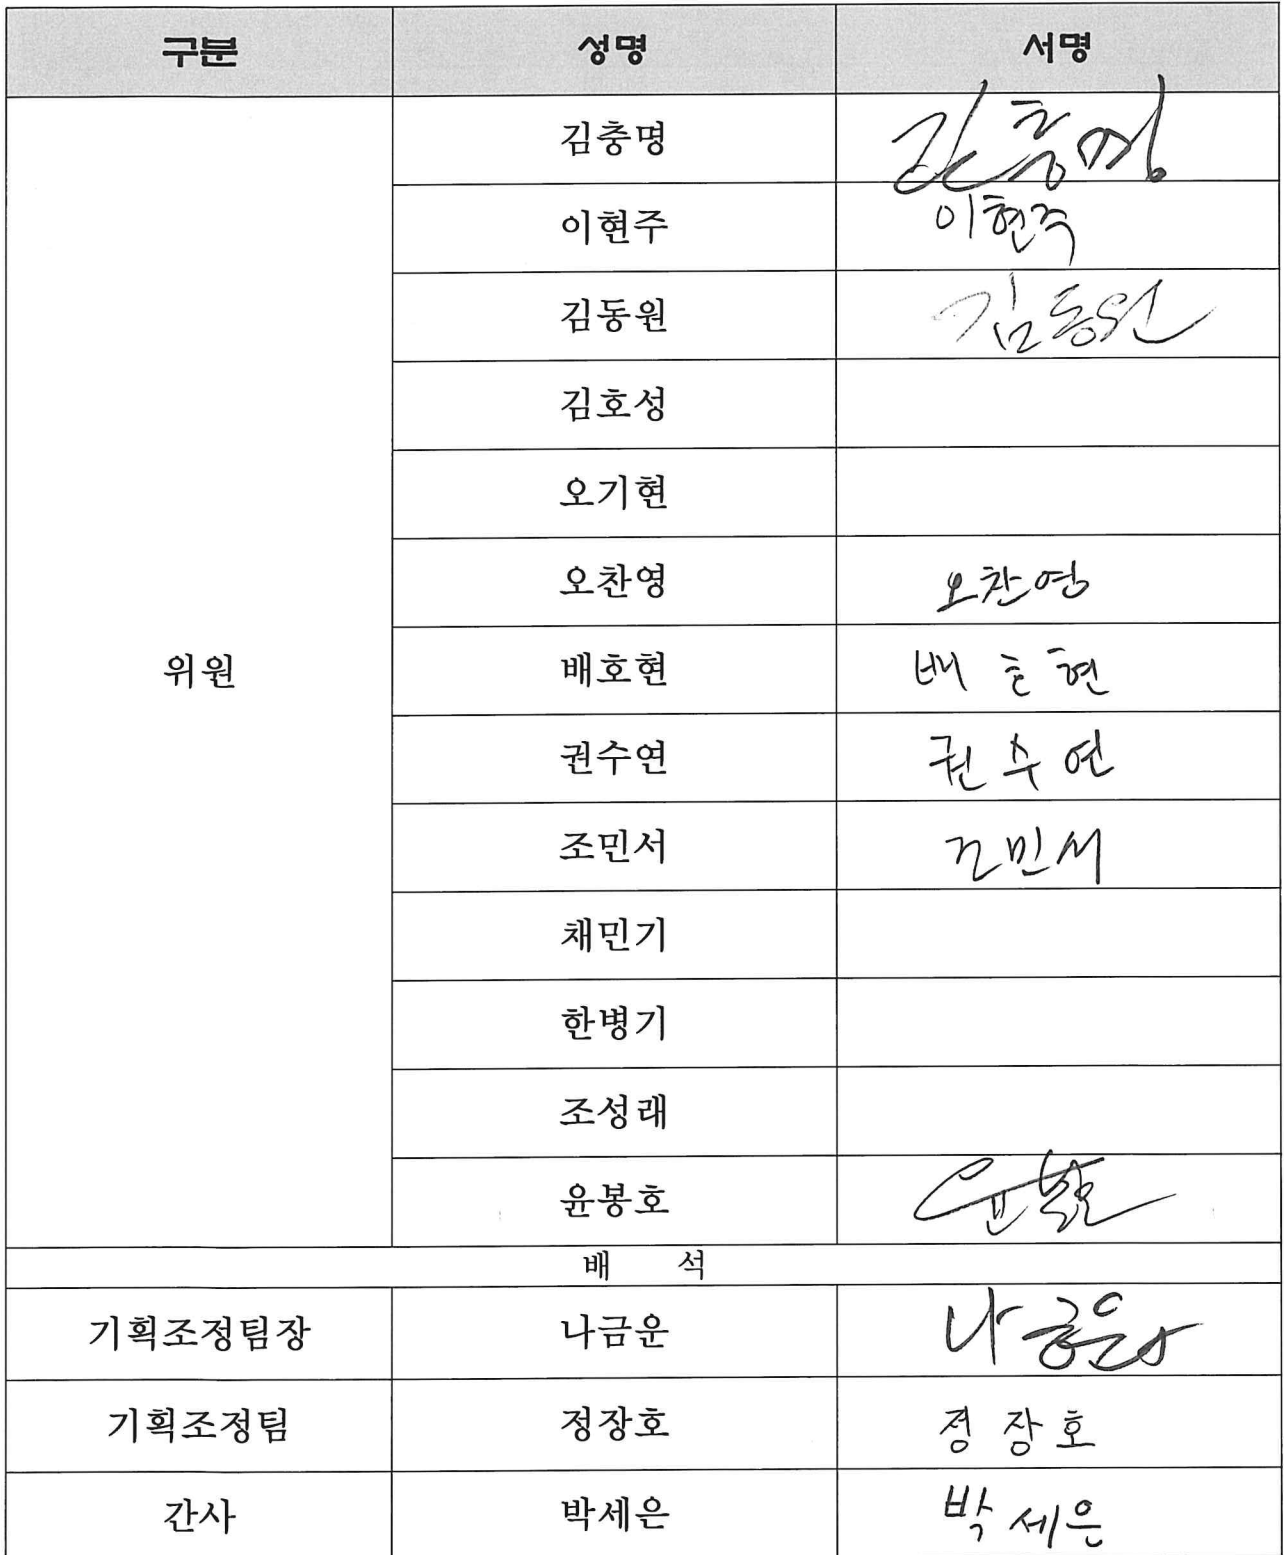 구분 성명 서명
김충명 김충명
이현주 이현주
김동원 김동원
김호성
오기현
오찬영 오찬영
위원 배호현 배호현
권수연 권수연
조민서 조민서
채민기
한병기
조성래
윤봉호 윤봉호
배 석
기획조정팀장 나금운 나금운
기획조정팀 정장호 정장호
간사 박세은 박세은